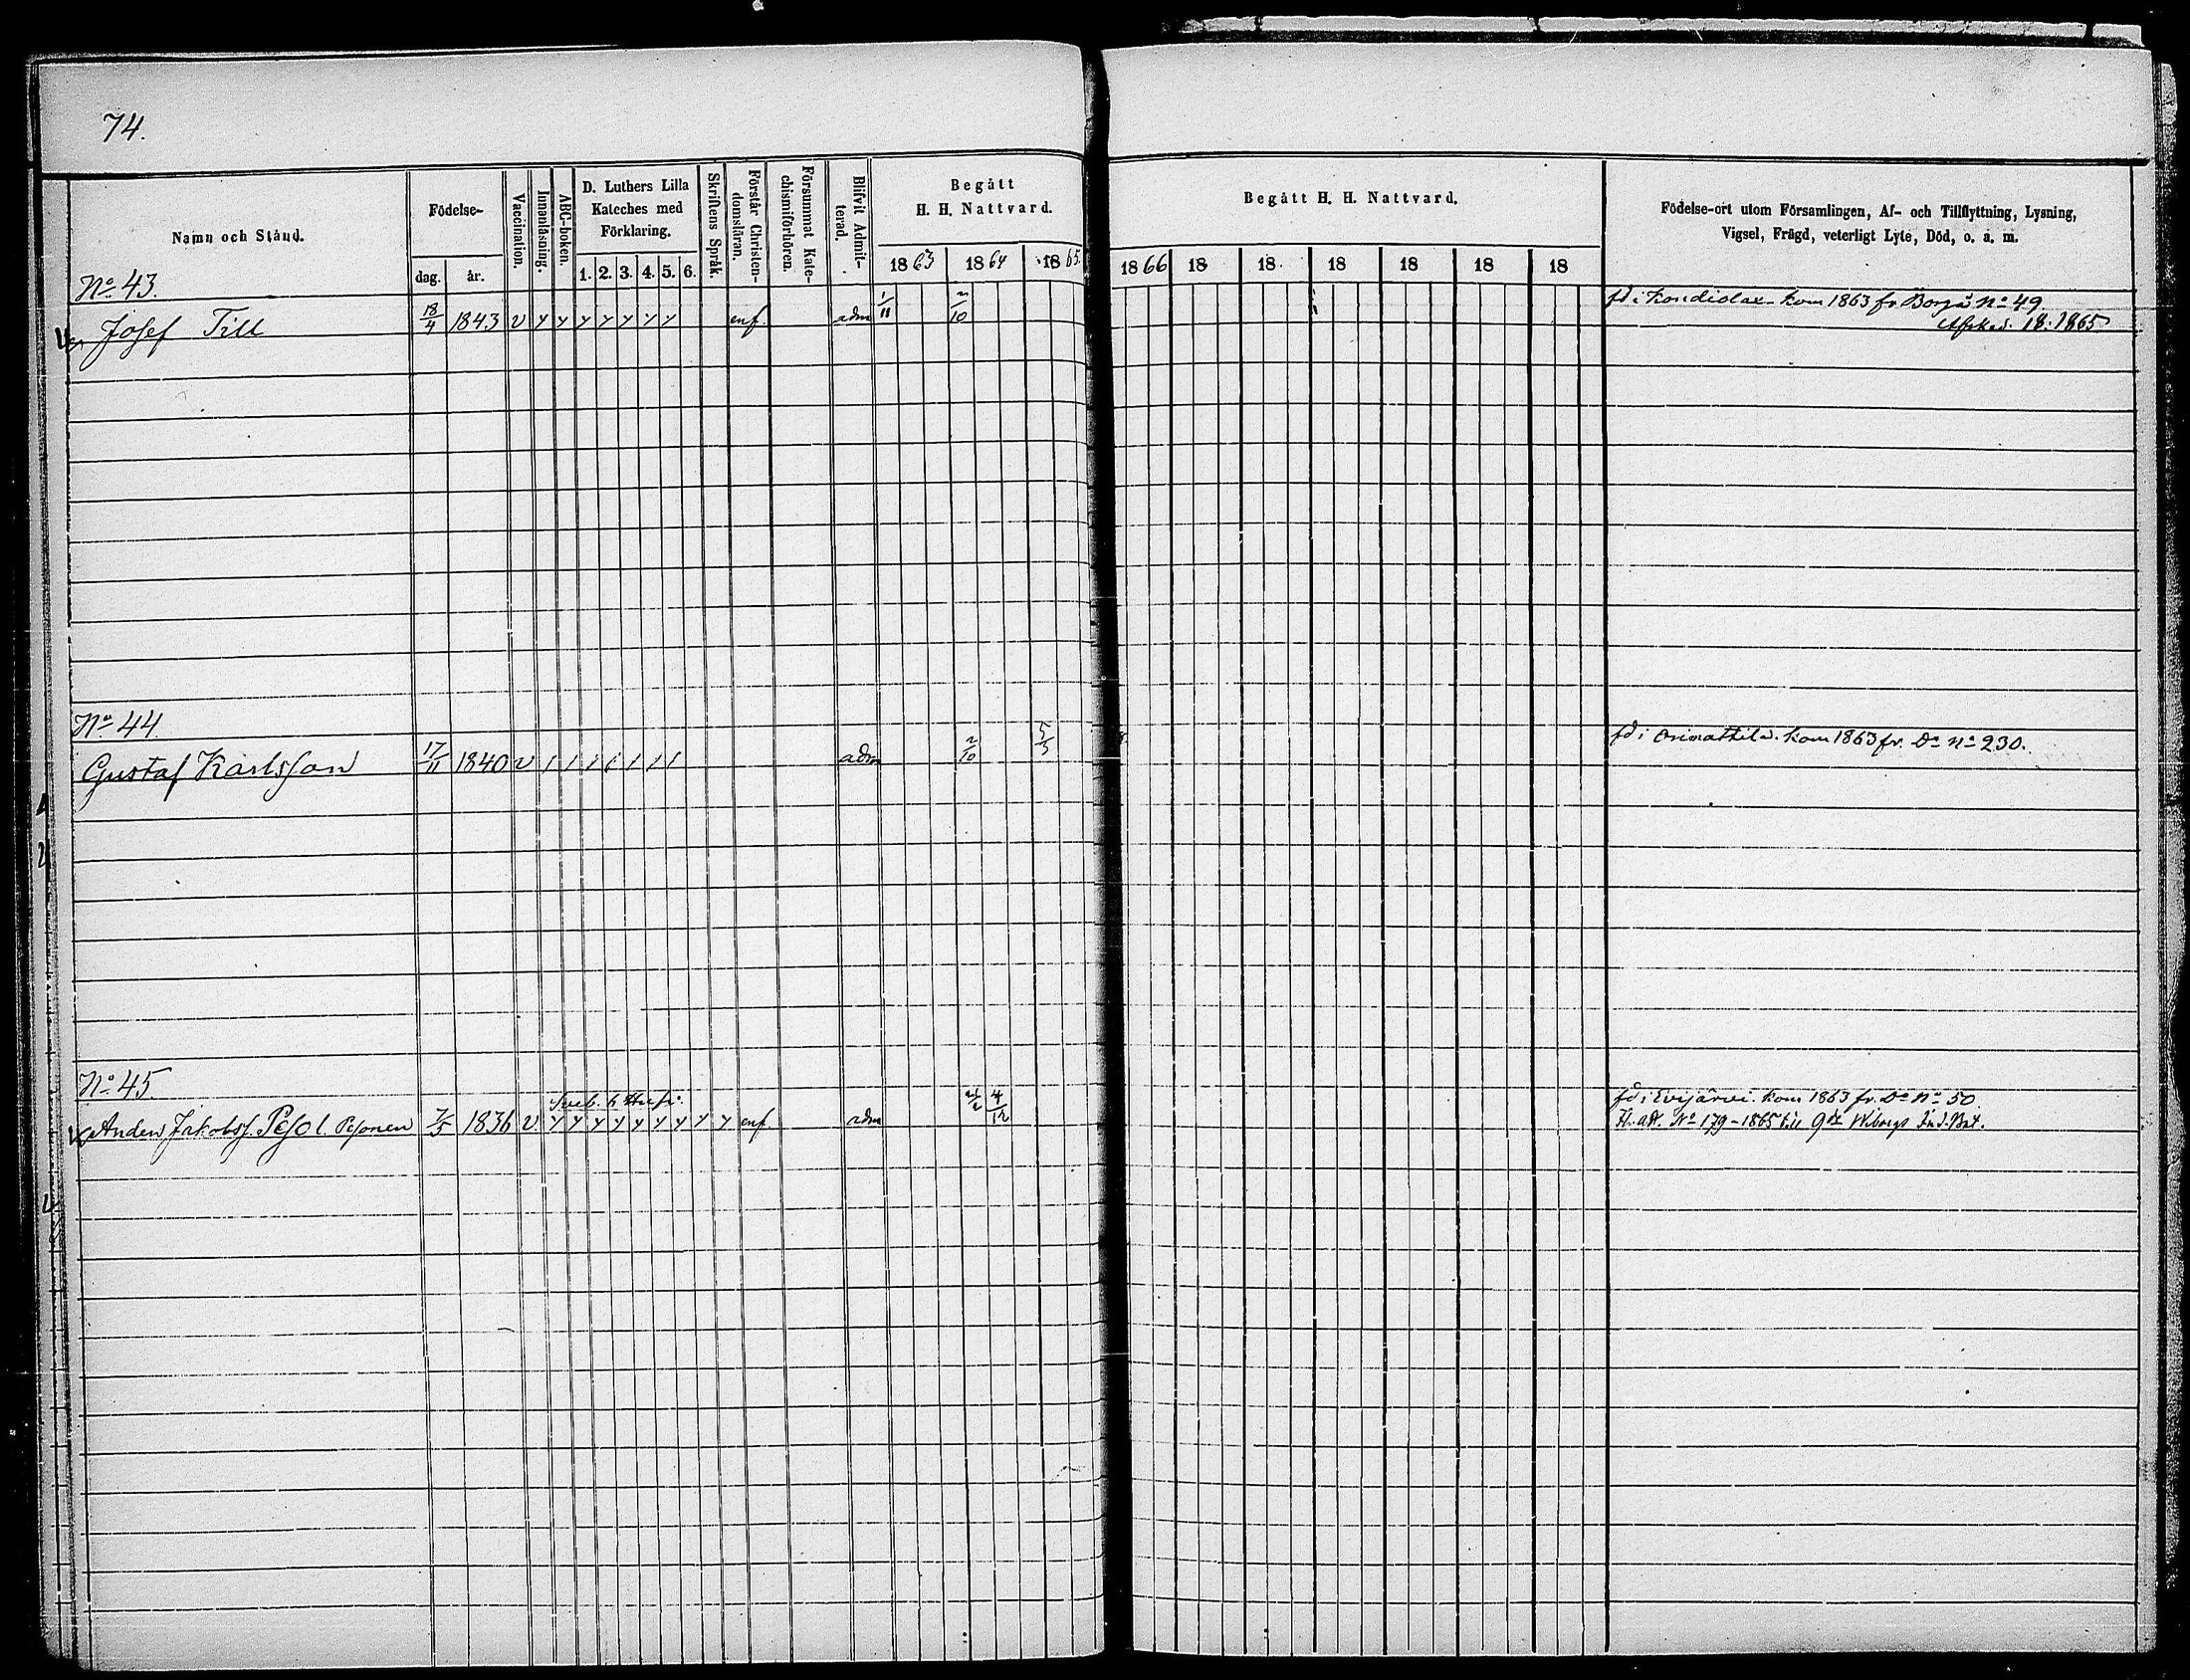 74.
Namn och Stånd.
Födelse-
dag. år.
Vaccination.
Innanläsning.
ABC-boken.
D. Luthers Lilla
Kateches med
Förklaring.
1. 2. 3. 4. 5. 6.
Skriftens Språk.
Förstår Christen-
domsläran.
Försummat Kate-
chismiförhören.
Blifvit Admit-
terad.
Begått
H. H. Nattvard.
1863 1864 1865.
Begått H. H. Nattvard.
1866 18 18 18 18 18 18
Födelse-ort utom Församlingen, Af- och Tillflyttning, Lysning,
Vigsel, Frägd, veterligt Lyte, Död, o. a. m.
No 43.
Josef Till 18/4 1843 v y y y y y y y enf. adm 1/11 2/10 fd i Kondiolax kom 1863 fr. Borgå No 49
Afsked. 18. 1865
No 44
Gustaf Karlsson 17/11 1840 v 1 1 1 1 1 1 1 adm 2/10 5/5 fd i Orimattila. kom 1863 fr. Do No 230.
No 45
Anders Jakobss. Pesol. Pesonen 7/5 1836 v. y y y y y y y y y enf adm 4/12 fd i Evijärvi. kom 1863 fr. Do No 50
No 179-1865 till Wiborgs Ind. Bat.